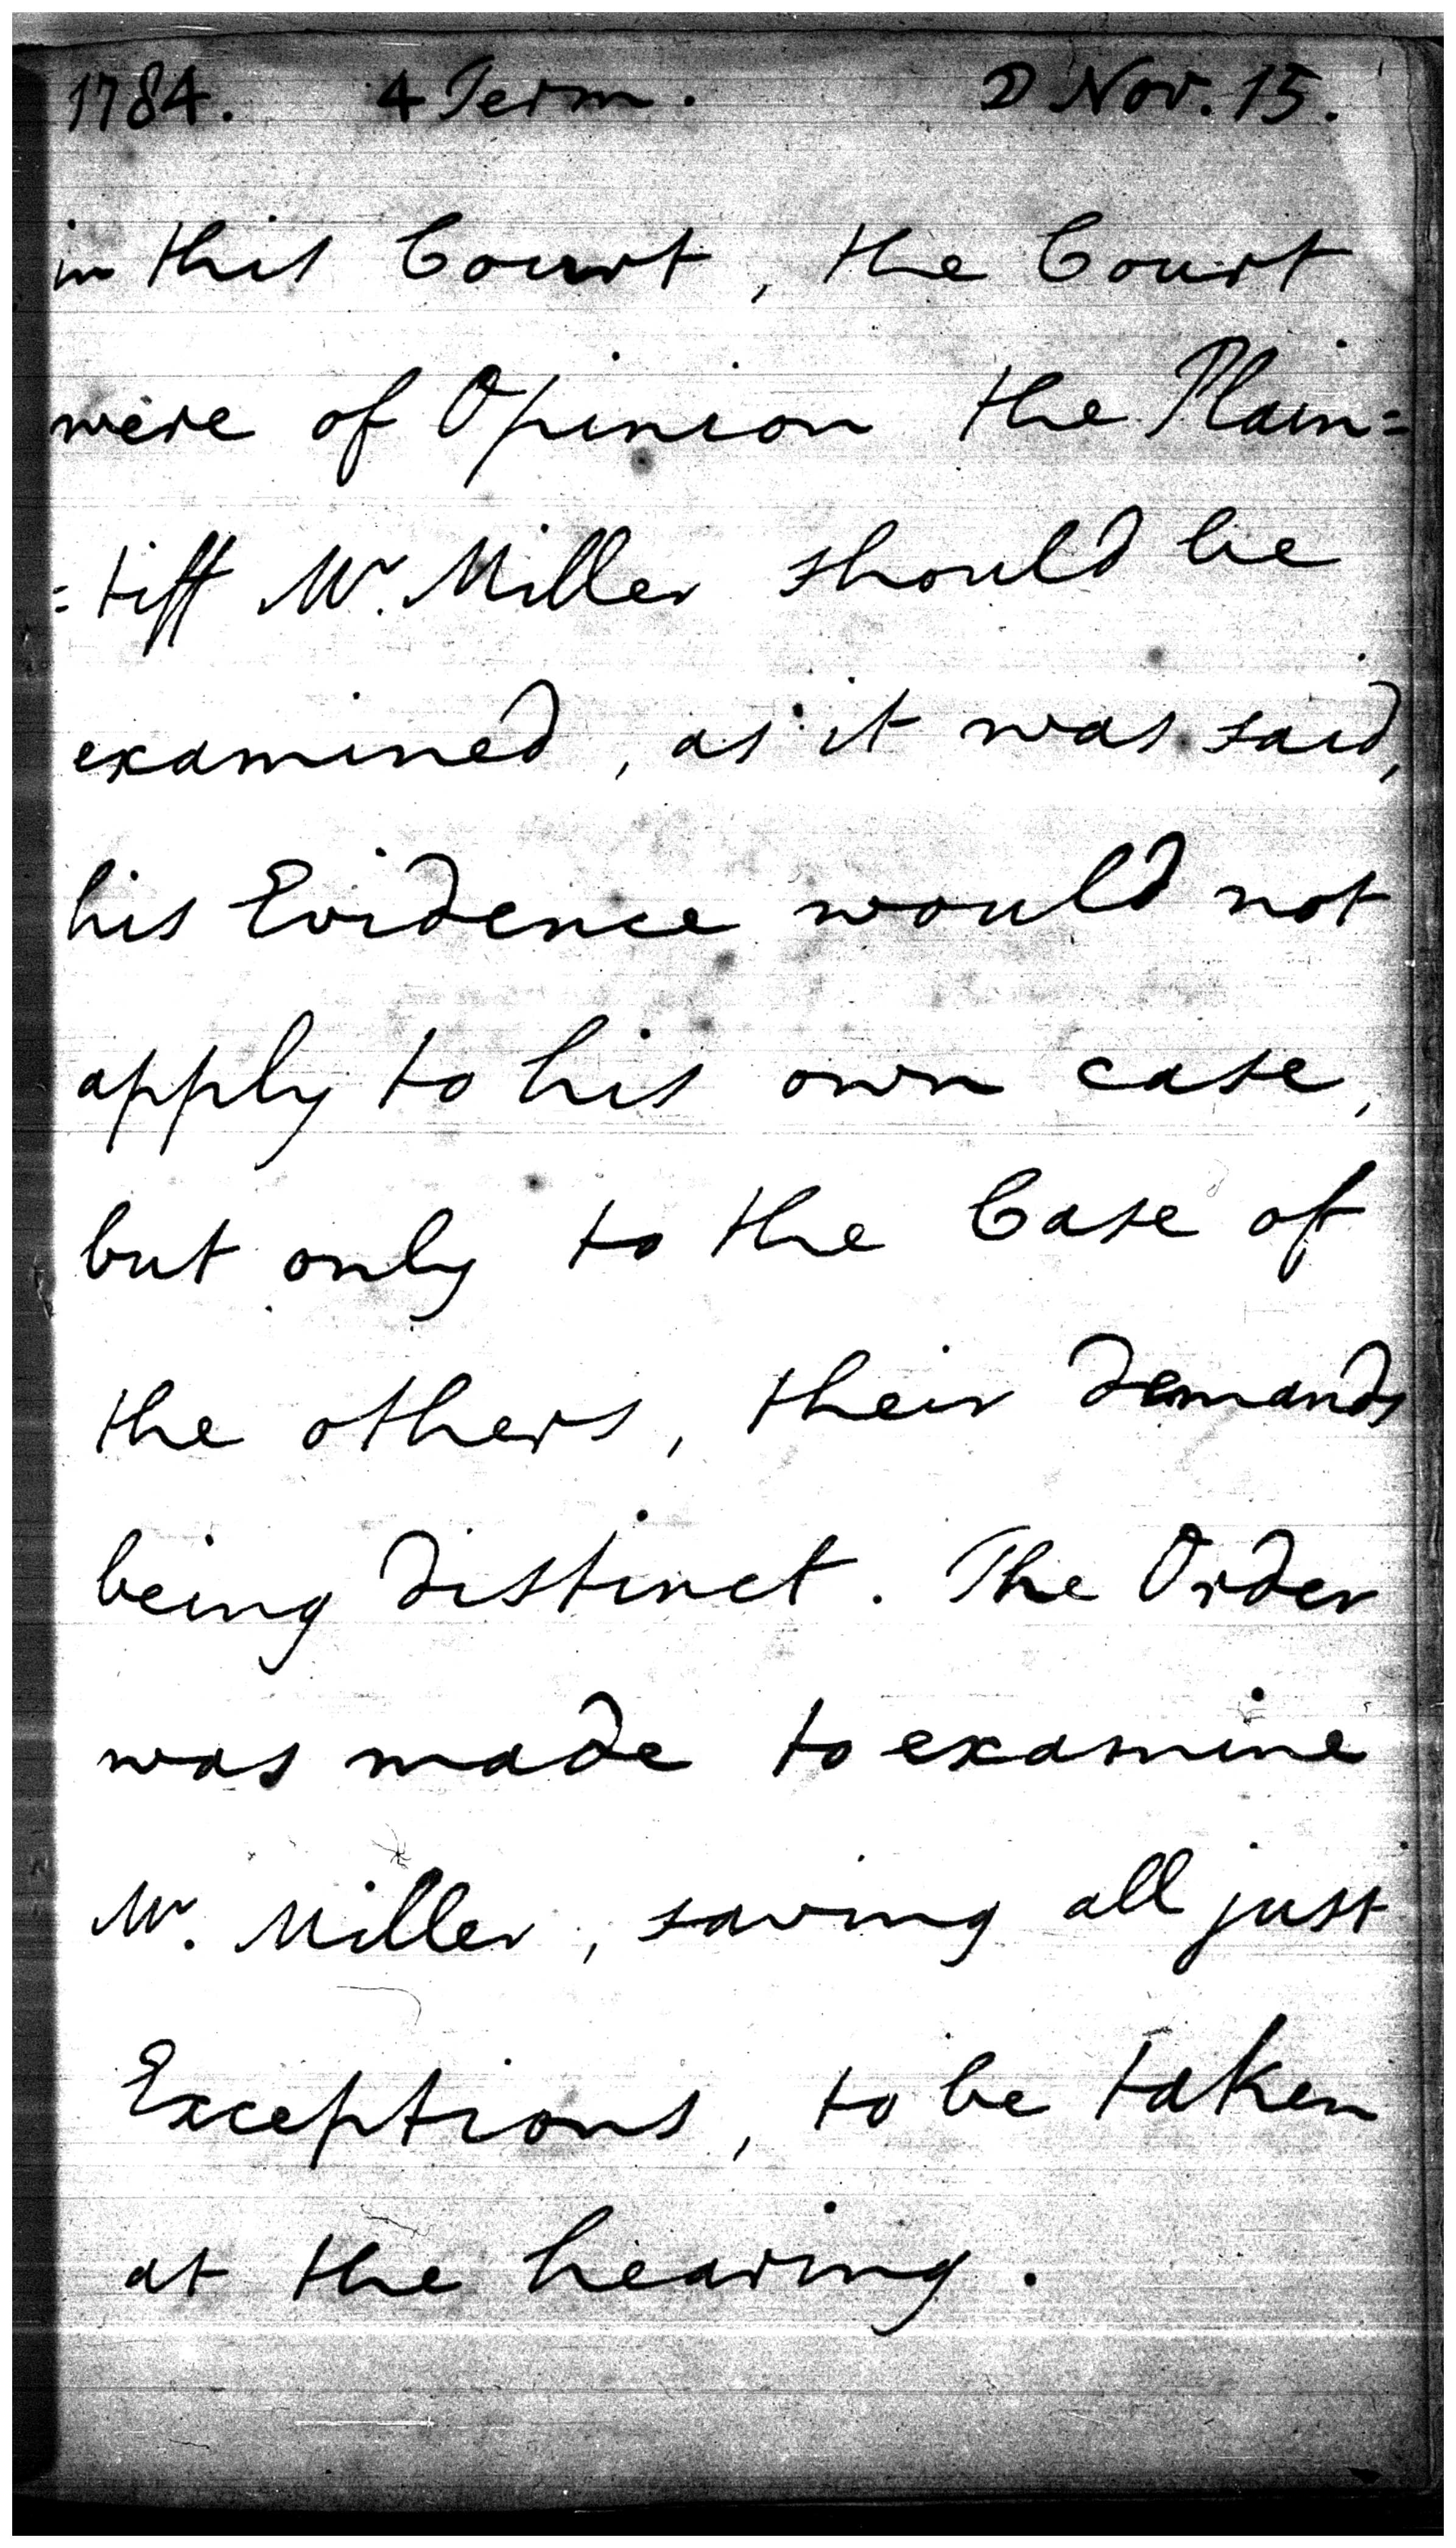 1784. 4 Term. ☽ Nov. 15.
in this Court, the Court
were of Opinion the Plain=
=tiff Mr. Miller should be
examined, as it was said,
his Evidence would not
apply to his own case,
but only to the Case of
the others, their demands
being distinct. The Order
was made to examine
Mr. Miller, saving all just
Exceptions, to be taken
at the hearing.